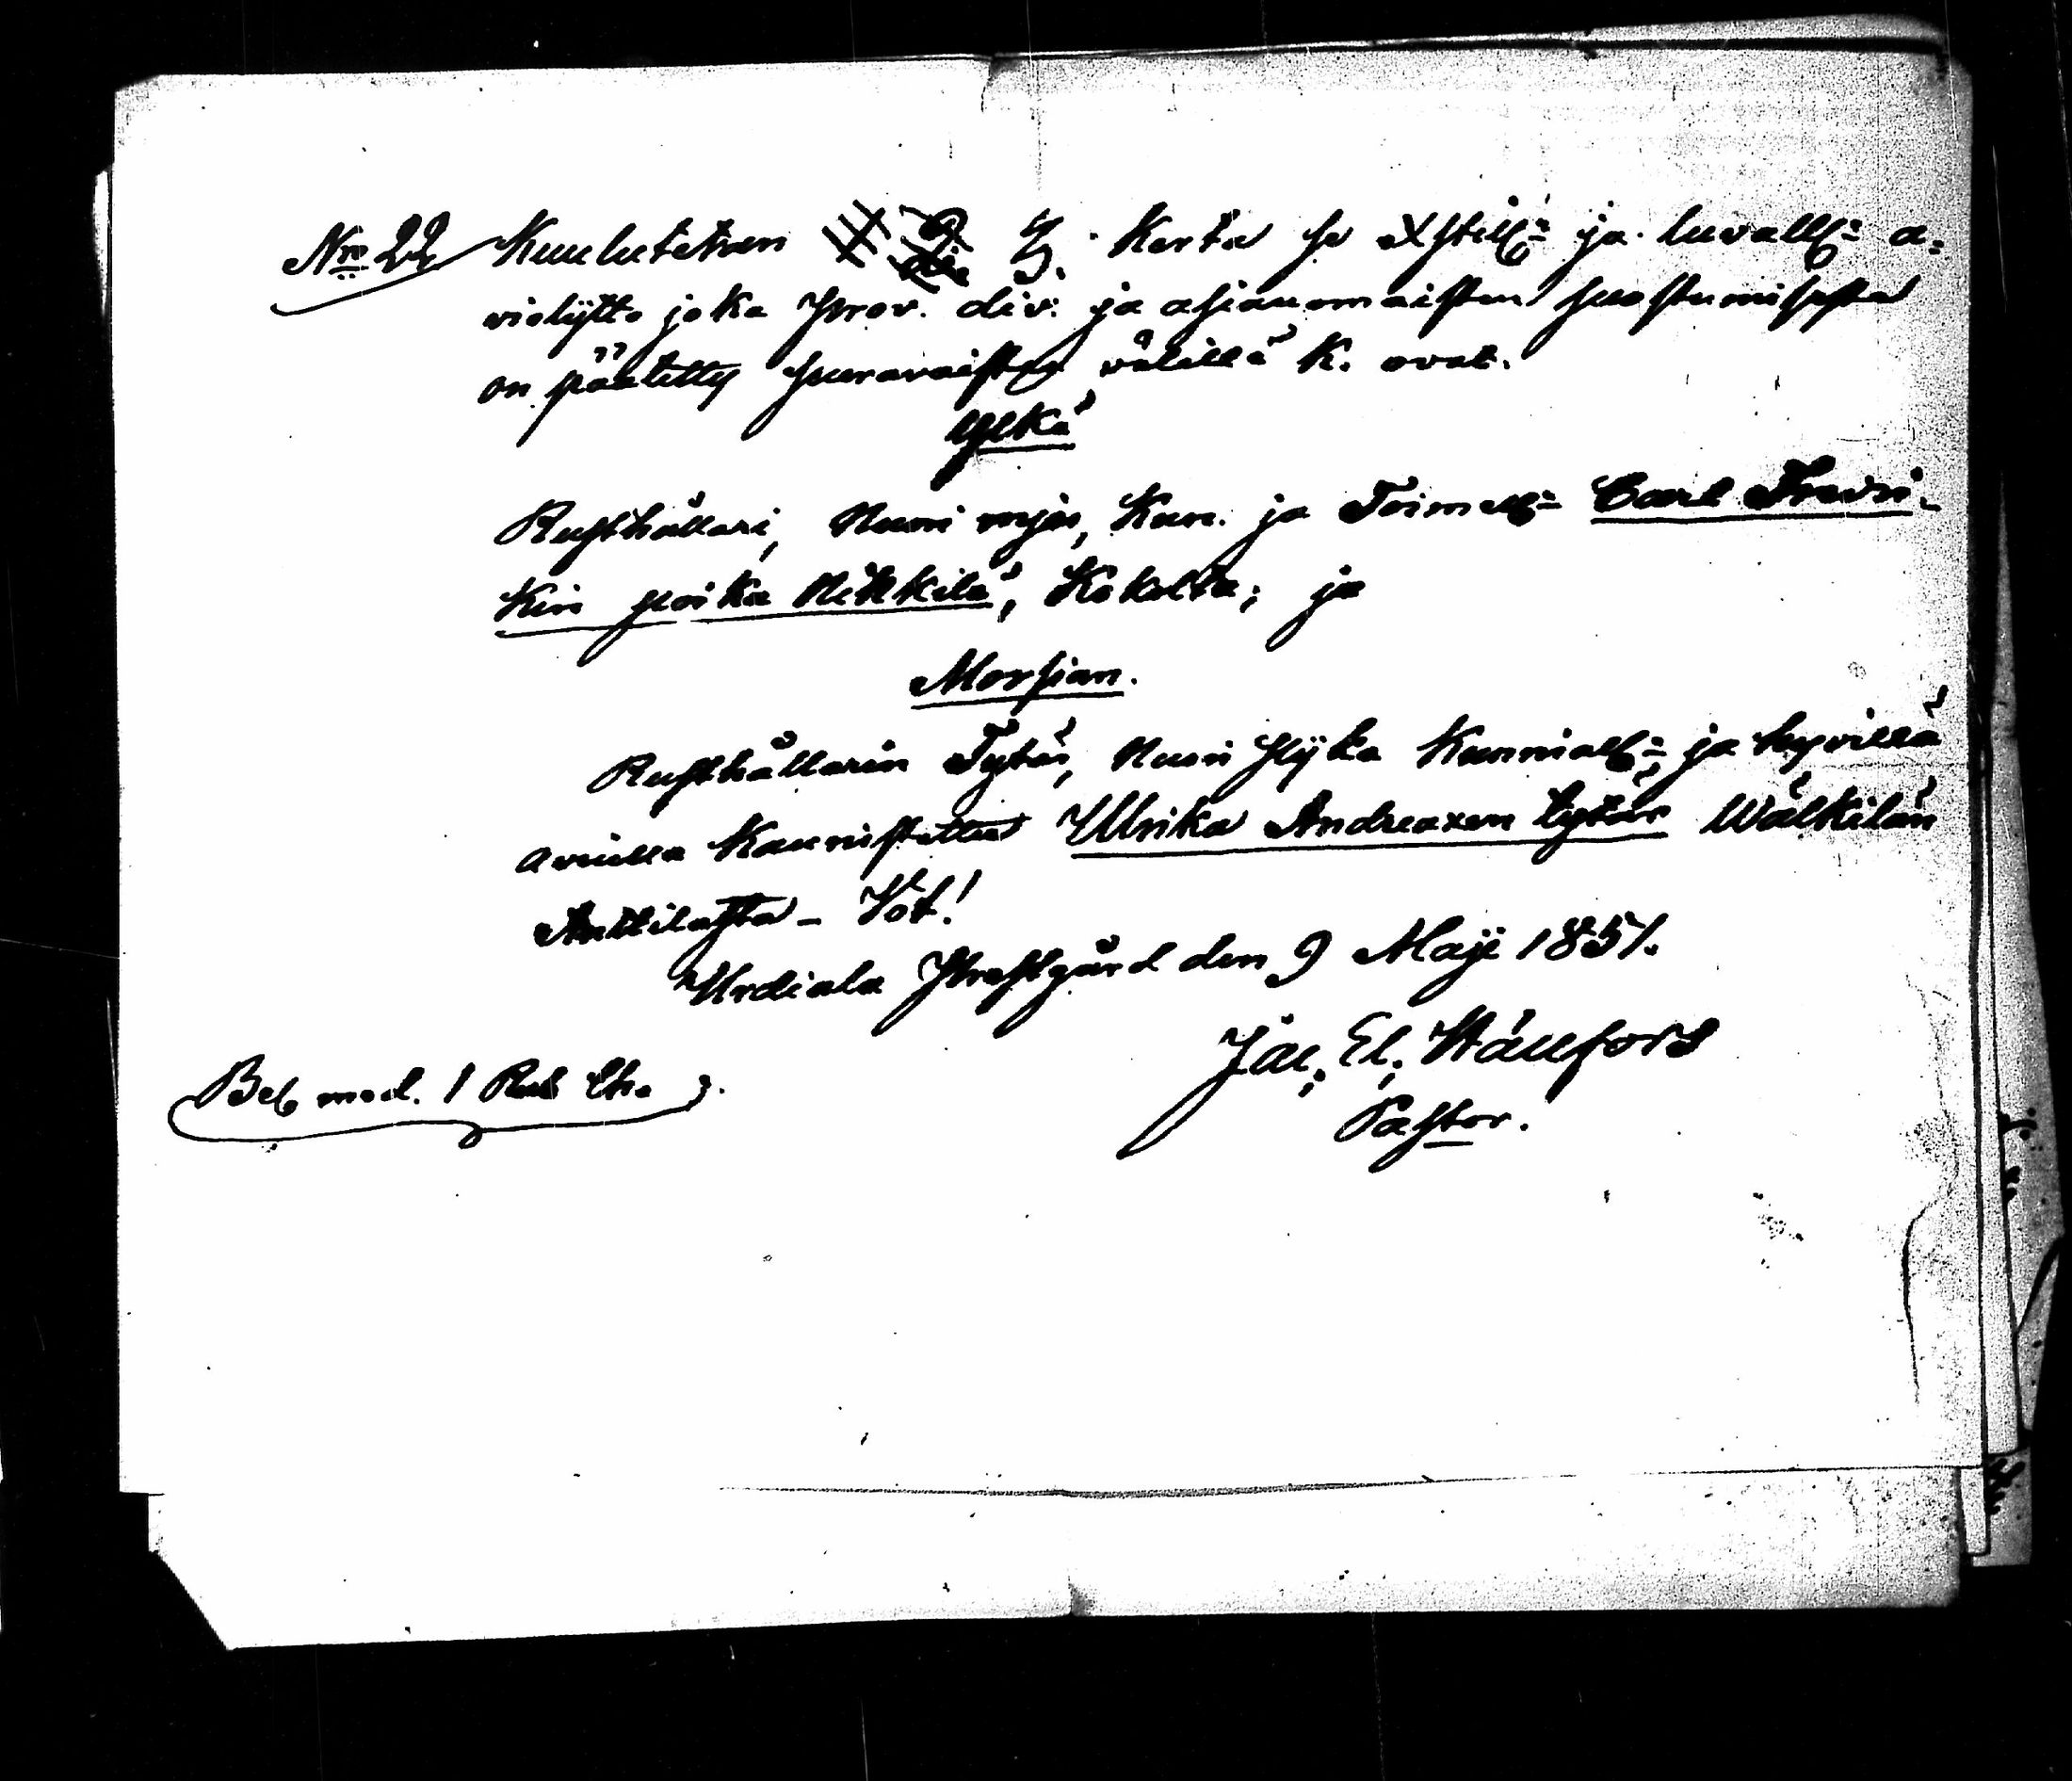 Nro 22 Kuulutetaan 3. Kerta se Xstill: ja luvall: a=
violijtto joka prov. div: ja asianomaisten suostumisesta
on päätetty seuravaisten välillä K. ovat.
Ylkä
Rusthållari, Nuori mjäs, Kun. ja Toimell: Carl Fredri-
kin poika Nikkilä, Kokolta; ja
Morsian.
Rusthållarin Tytär, Nuori pijka Kunniall: ja hyvillä
avuilla Kaunistettu Ulrika Andreaxen tytär Wälkilän
Anttilasta - Vot!
Urdiala Prestgård den 9 Maji 1851.
Jac; El; Stäufors
Pastor.
Bet med. 1 Rub